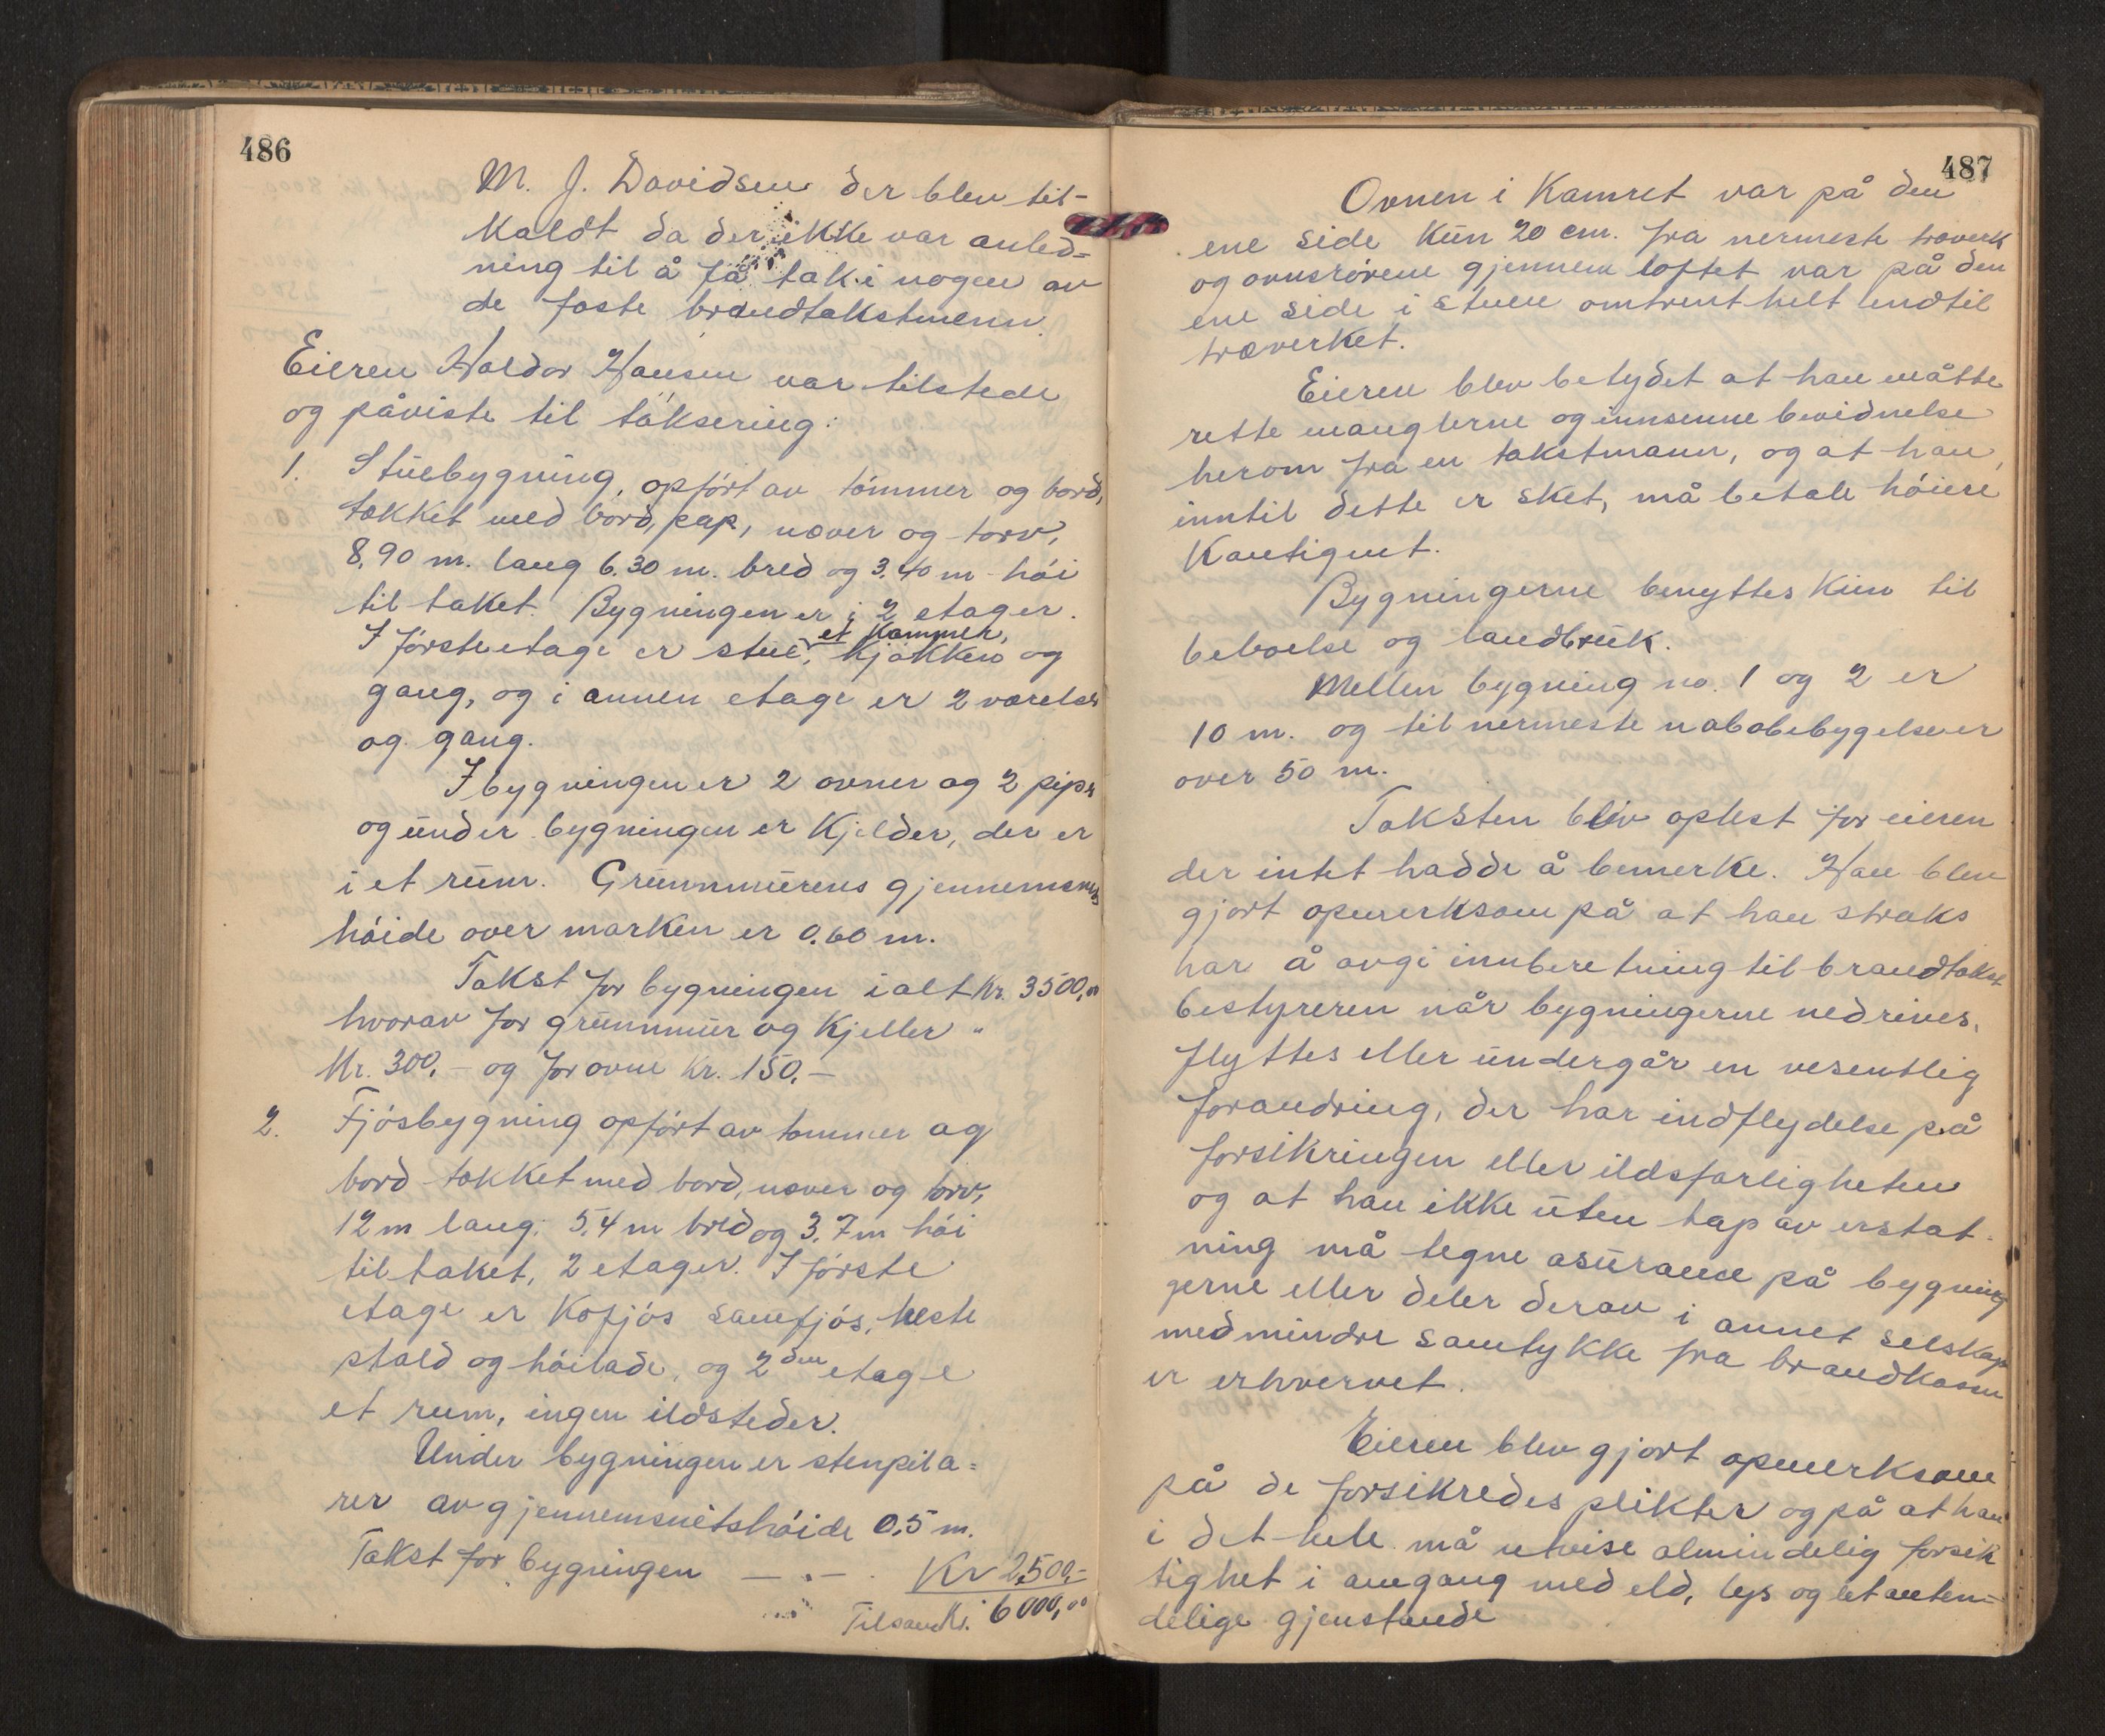 486
M. J. Davidsen der blev til-
kaldt da der ikke var anled=
ning til å få tak i nogen av
de faste brandtakstmenn.
Eieren Haldor Hansen var tilstede
og påviste til taksering:
1. Stuebygning, opført av tømmer og bord,
tækket med bord, pap, næver og torv,
8,90 m. lang 6.30 m. bred og 3.40 m høi
til taket. Bygningen er i 2 etager.
et kammer,
I første etage er stue, kjøkken og
gang, og i annen etage er 2 værelser
og gang.
I bygningen er 2 ovner og 2 piper
og under bygningen er Kjelder, der er
i et rum. Grunnmurens gjennemsnits
høide over marken er 0.60 m.
Takst for bygningen ialt kr. 3500,00
hvorav for grunnmur og kjeller "
Kr. 300,- og for ovne kr. 150.-
2. Fjøsbygning opført av tømmer og
bord tækket med bord, næver og torv,
12 m lang, 5,4 m bred og 3.7 m høi
til taket, 2 etager. I første
etage er Kofjøs sauefjøs, heste
stald og høilade, og 2den etage
et rum, ingen ildsteder.
Under bygningen er stenpila=
rer av gjennemsnitshøide 0,5 m.
Takst for bygningen — . — . Kr 2,500,-
Tilsam Kr. 6000,00
487
Ovnen i Kamret var på den
ene side kun 20 cm. fra nermeste træverk
og ovnsrørene gjennem loftet var på den
ene side i stuen omtrent helt indtil
træverket.
Eieren blev betydet at han måtte
rette manglerne og innsenne bevidnelse
herom fra en takstmann, og at han,
inntil dette er sket, må betale høiere
Kontigent.
Bygningerne benyttes kun til
beboelse og landbruk.
Mellem bygning no. 1 og 2 er
10 m. og til nermeste nabobebygelse er
over 50 m.
Taksten blev oplest for eieren
der intet hadde å bemerke. Han blev
gjort opmerksom på at han straks
har å avgi innberetning til brandtakst
bestyreren når bygningerne nedrives,
flyttes eller undergår en vesentlig
forandring, der har indflydelse på
forsikringen eller ildsfarligheten
og at han ikke uten tap av erstat-
ning må tegne asurance på bygnin
gerne eller deler derav i annet selskap
medmindre samtykke fra brandkassen
er erhvervet.
Eieren blev gjort opmerksom
på de forsikredes plikter og på at han
i det hele må utvise almindelig forsik
tighet i omgang med eld, lys og let anten=
delige gjenstande